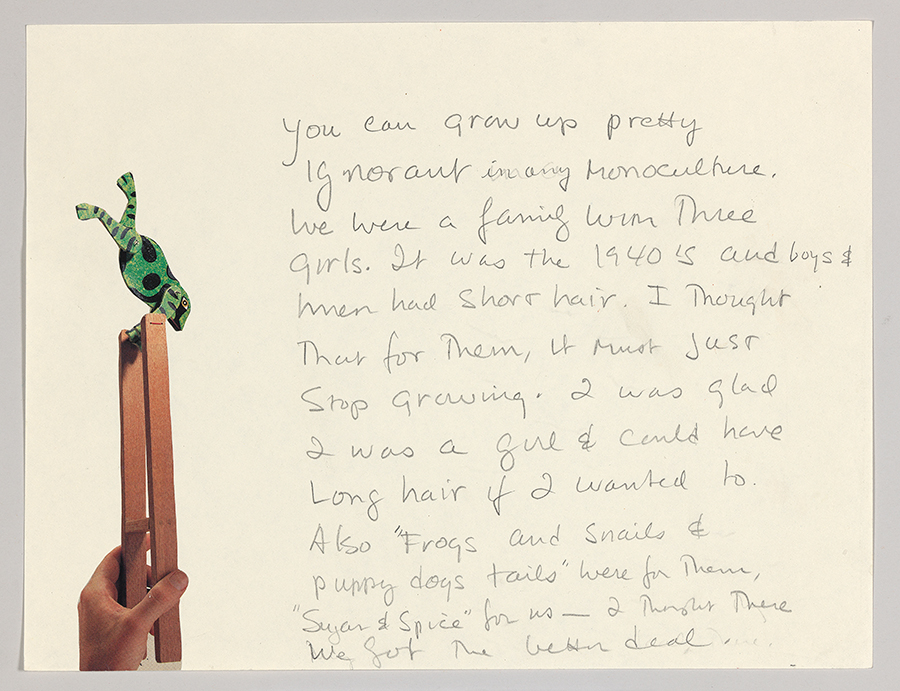 You can grow up pretty
Ignorant in any Monoculture.
We were a family with Three
girls. It was the 1940's and boys &
men had short hair. I Thought
That for Them, it must just
Stop growing. I was glad
I was a girl & could have
Long hair if I wanted to.
Also "Frogs and snails &
puppy dogs tails" were for Them,
"Sugar & Spice" for us — I Thought There
We got The better deal.